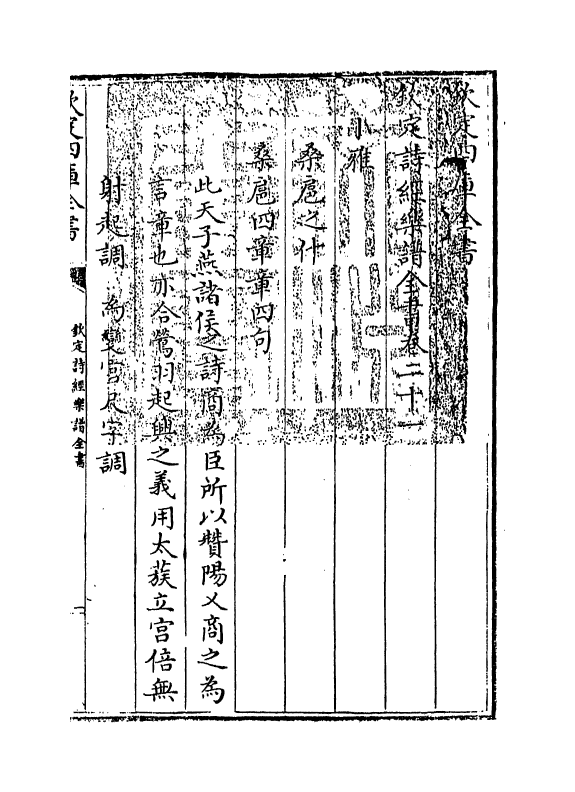 欽定四庫全書
欽定詩經樂譜全書卷二十一
小雅
桑扈之什
桑扈四章章四句
此天子燕諸侯之詩商為臣所以贊陽又商之為
言章也亦合鶯羽起興之義用太蔟立宫倍無
射起調為變宫尺字調
欽定四庫全書
欽定詩經樂譜全書
一